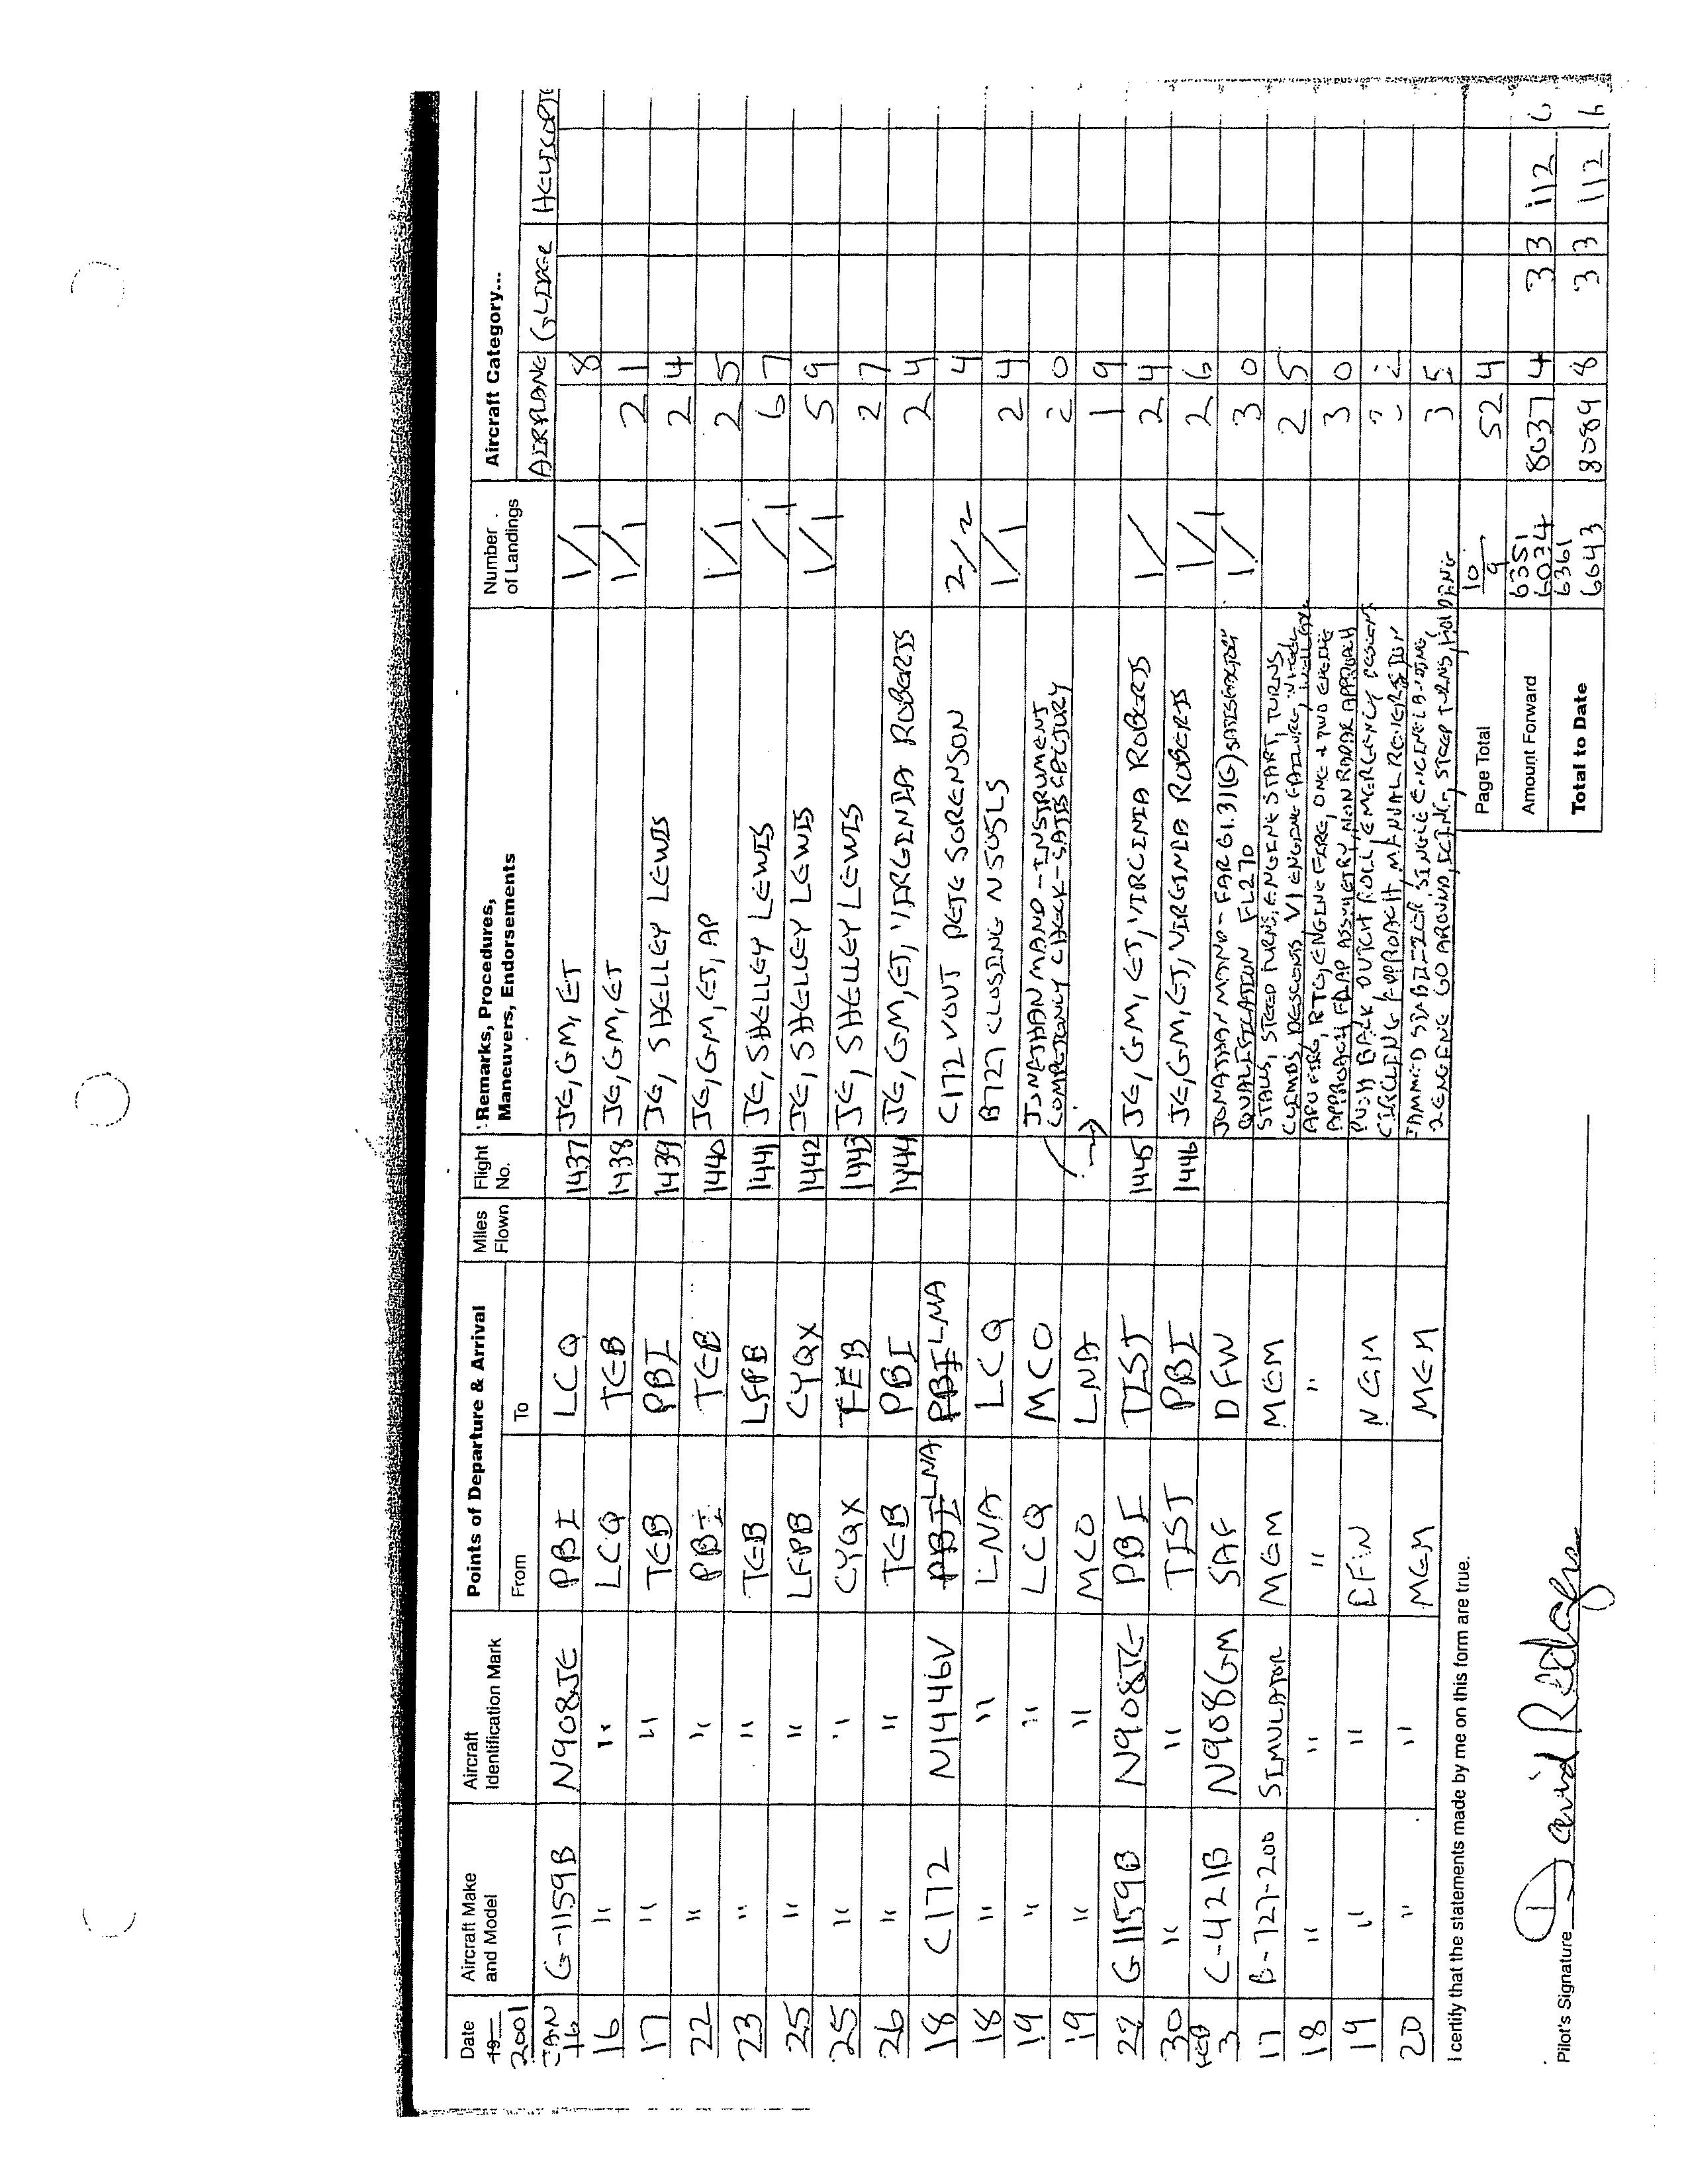 Date Aircraft Make and Model Aircraft Identification Mark Points of Departure & Arrival Miles Flown Flight No. Remarks, Procedures, Maneuvers, Endorsements Number of Landings Aircraft Category...
19 2001 From To AIRPLANE GLIDER
JAN 16 G-1159B N908JE PBI LCQ 1437 JE, GM, ET 1/1 8
16 " " LCQ TEB 1438 JE, GM, ET 1/1 2 1
17 " " TEB PBI 1439 JE, SHELLEY LEWIS 2 4
22 " " PBI TEB 1440 JE, GM, ET, AP 1/1 2 5
23 " " TEB LFPB 1441 JE, SHELLEY LEWIS /1 6 7
25 " " LFPB CYQX 1442 JE, SHELLEY LEWIS 1/1 5 9
25 " " CYQX TEB 1443 JE, SHELLEY LEWIS 2 7
26 " " TEB PBI 1444 JE, GM, ET, VIRGINIA ROBERTS 2 4
18 C172 N1446V PBI LNA PBI LNA C172 VOUT PETE SORENSON 2/2 4
18 " " LNA LCQ B727 CLOSING N505LS 1/1 2 4
19 " " LCQ MCO JONATHAN MANO - INSTRUMENT COMPETENCY CHECK - SATISFACTORY 2 0
19 " " MCO LNA → 1 9
27 G1159B N908JE PBI TIST 1445 JE, GM, ET, VIRGINIA ROBERTS 1/ 2 4
30 " " TIST PBI 1446 JE, GM, ET, VIRGINIA ROBERTS 1/1 2 6
FEB 3 C-421B N908GM SAF DFW JONATHAN MANO - FAR 61.31(G) SATISFACTORY QUALIFICATION FL270 1/ 3 0
17 B-727-200 SIMULATOR MEM MEM STALLS, STEEP TURNS, ENGINE START, TURNS, CLIMBS, DESCENTS, V1 ENGINE FAILURE, 2 5
18 " " " " APU FIRE, RTO, ENGINE FIRE, ONE & TWO ENGINE APPROACH, FLAP ASSYMETRY, NON RADAR APPROACH 3 0
19 " " MEM PUSH BACK DUTCH ROLL, EMERGENCY DESCENT CIRCLING APPROACH, MANUAL REVERSION
20 " " MEM MEM JAMMED STABILIZER SINGLE ENGINE LANDING, 2 ENGINE GO AROUND, ICING, STEEP TURNS, HOLDING 3 5
I certify that the statements made by me on this form are true.
Page Total 10/9 52 4
Amount Forward 6351 6034 8037 4 3 3 112
Total to Date 6361 6043 8089 8 3 3 112
Pilot's Signature David Rodgers